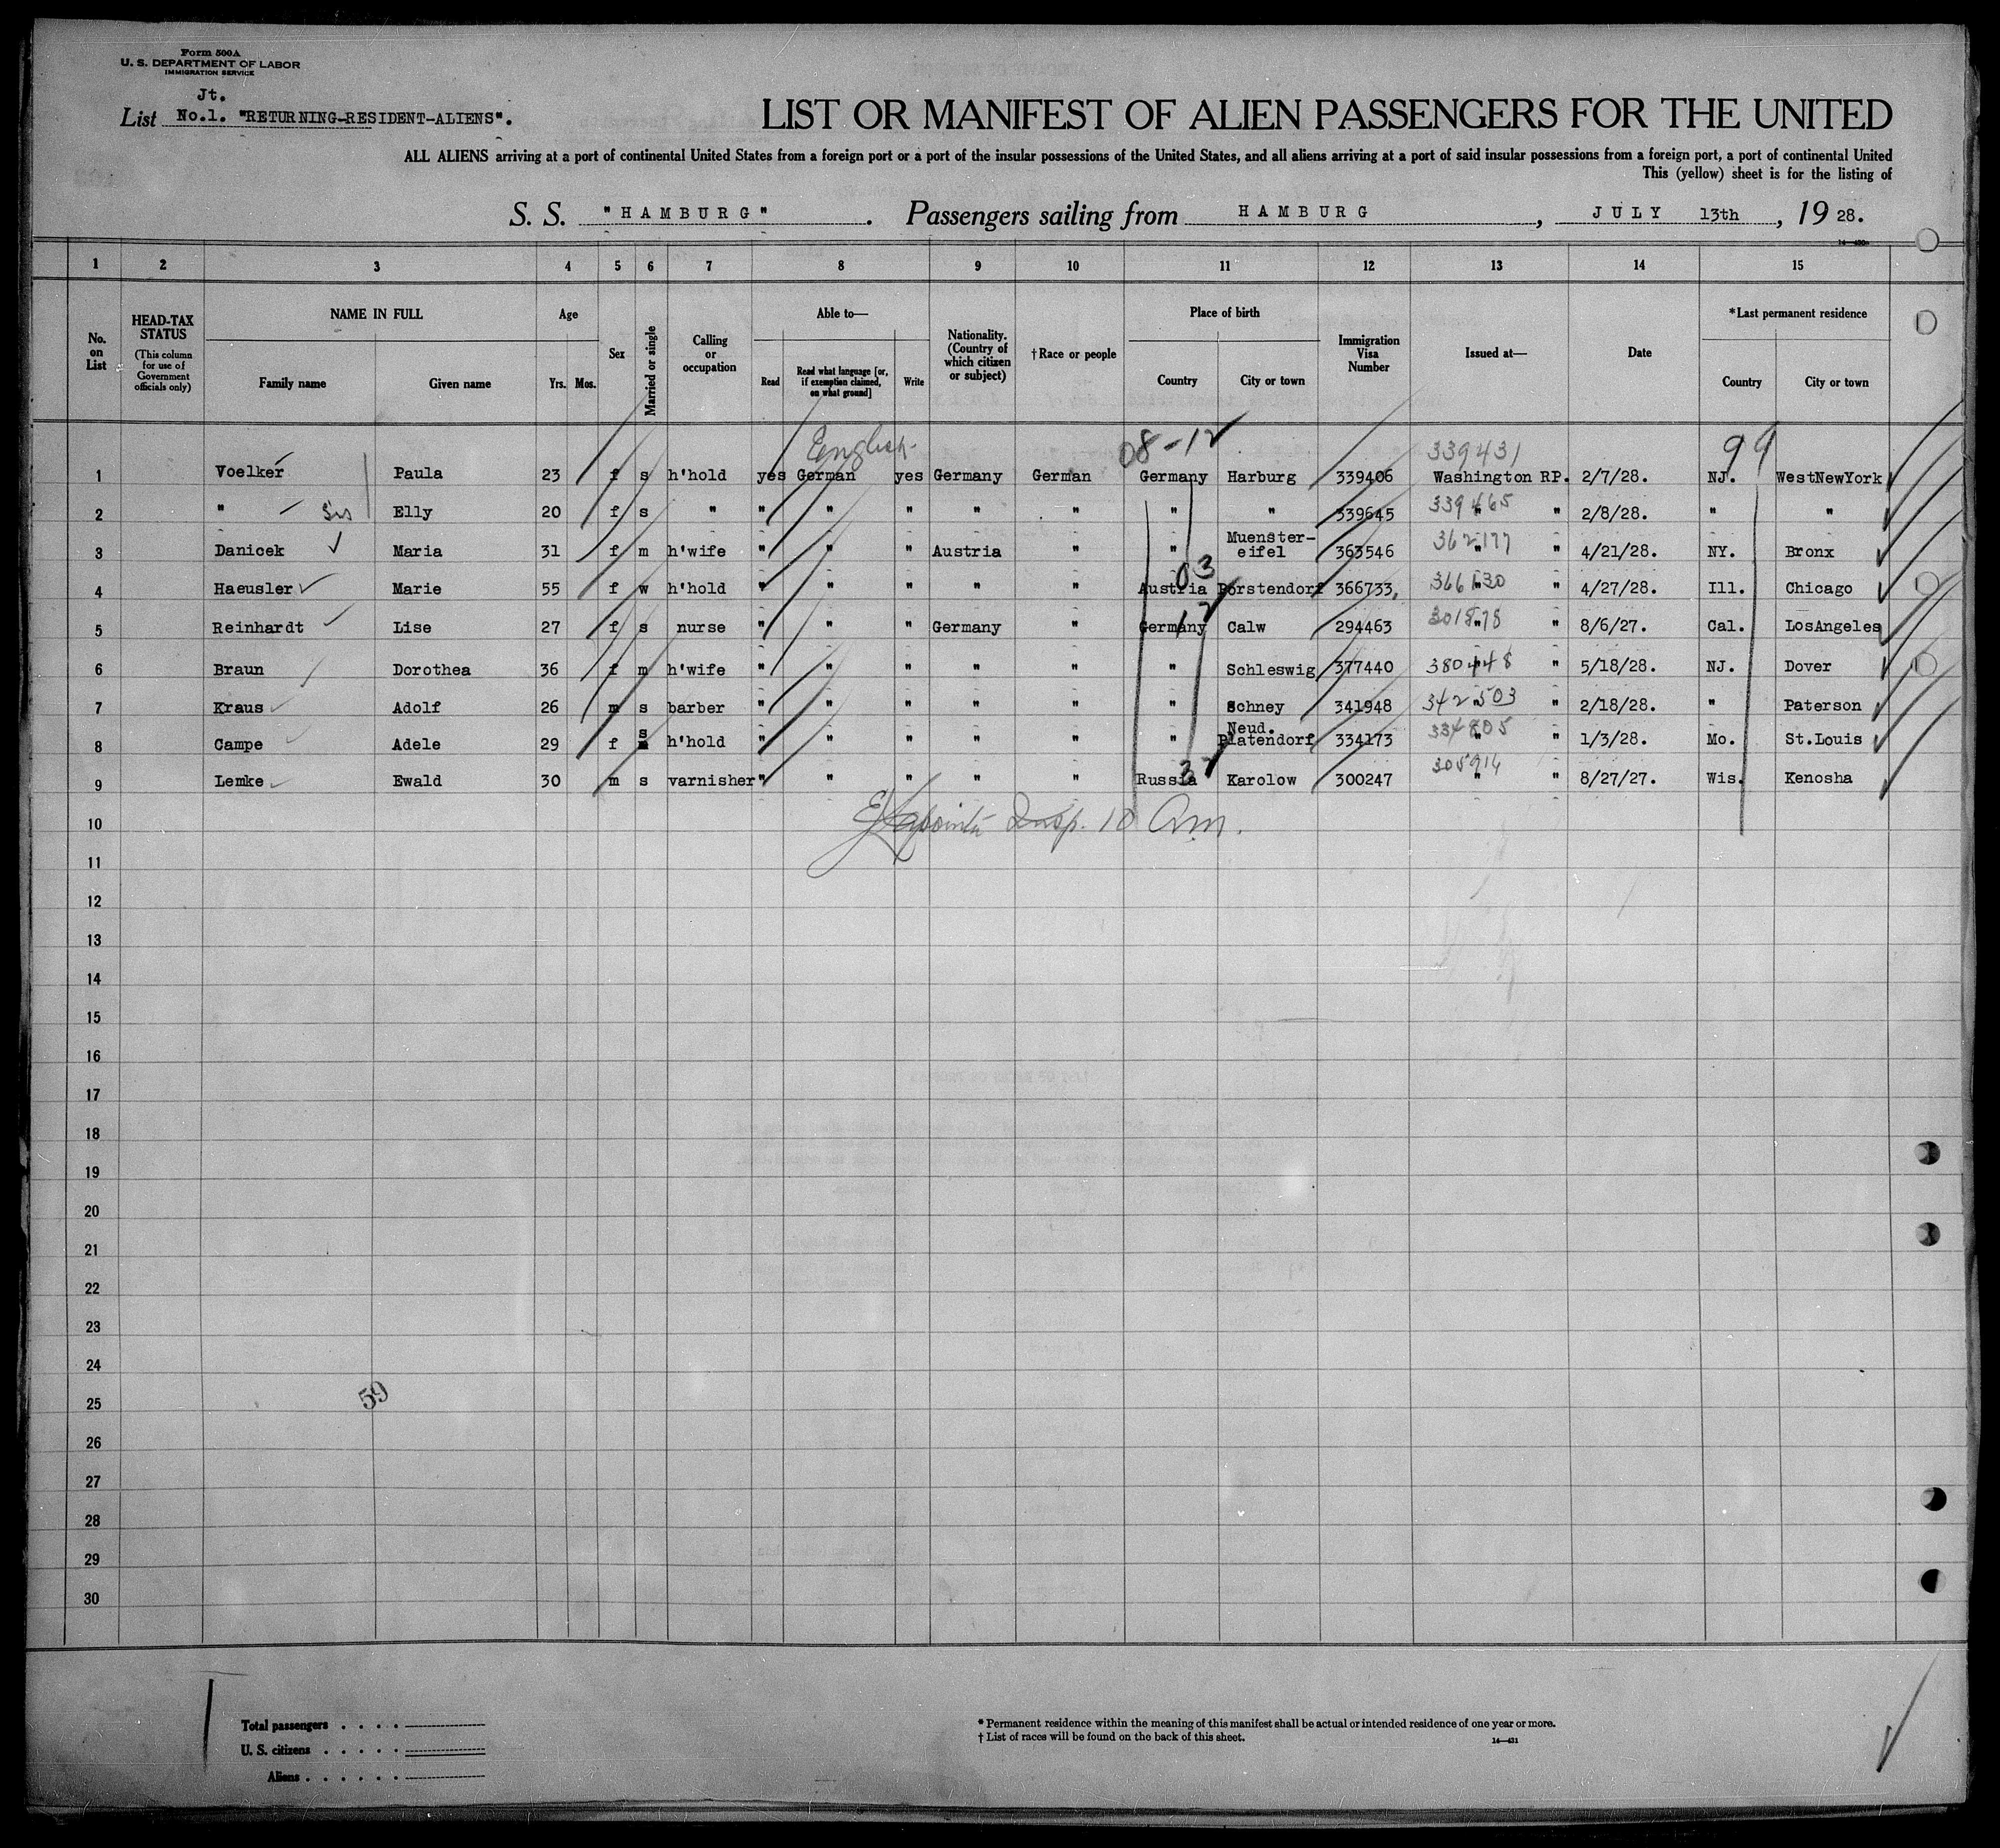 Form 500A
U. S. DEPARTMENT OF LABOR
IMMIGRATION SERVICE
Jt.
List No.1. "RETURNING-RESIDENT-ALIENS".
LIST OR MANIFEST OF ALIEN PASSENGERS FOR THE UNITED
ALL ALIENS arriving at a port of continental United States from a foreign port or a port of the insular possessions of the United States, and all aliens arriving at a port of said insular possessions from a foreign port, a port of continental United
This (yellow) sheet is for the listing of
S. S. "HAMBURG". Passengers sailing from HAMBURG, JULY 13th, 19 28.
1 2 3 4 5 6 7 8 9 10 11 12 13 14 15
No. on List
HEAD-TAX STATUS (This column for use of Government officials only)
NAME IN FULL Family name Given name
Age Yrs. Mos.
Sex
Married or single
Calling or occupation
Able to— Read Read what language [or, if exemption claimed, on what ground] Write
Nationality. (Country of which citizen or subject)
†Race or people
Place of birth Country City or town
Immigration Visa Number
Issued at—
Date
*Last permanent residence Country City or town
English 08-12 339431 99
1 Voelker Paula 23 f s h'hold yes German yes Germany German Germany Harburg 339406 Washington RP. 2/7/28. NJ. WestNewYork
2 " Sis Elly 20 f s " " " " " " " " 339645 339465 " " 2/8/28. " "
3 Danicek Maria 31 f m h'wife " " " Austria " " Muenster-eifel 363546 362177 " " 4/21/28. NY. Bronx
03
4 Haeusler Marie 55 f w h'hold " " " " " Austria Porstendorf 366733, 366630 " " 4/27/28. Ill. Chicago
12
5 Reinhardt Lise 27 f s nurse " " " Germany " Germany Calw 294463 301878 " " 8/6/27. Cal. LosAngeles
6 Braun Dorothea 36 f m h'wife " " " " " " Schleswig 377440 380448 " " 5/18/28. NJ. Dover
7 Kraus Adolf 26 m s barber " " " " " " Schney 341948 342503 " " 2/18/28. " Paterson
8 Campe Adele 29 f s h'hold " " " " " " Neud. Platendorf 334173 334805 " " 1/3/28. Mo. St.Louis
3
9 Lemke Ewald 30 m s varnisher " " " " " Russia Karolow 300247 305914 " " 8/27/27. Wis. Kenosha
10 Insp. 10 Am.
11
12
13
14
15
16
17
18
19
20
21
22
23
24
59
25
26
27
28
29
30
Total passengers . . . .
U. S. citizens . . . . .
Aliens . . . . . .
* Permanent residence within the meaning of this manifest shall be actual or intended residence of one year or more.
† List of races will be found on the back of this sheet.
14—431